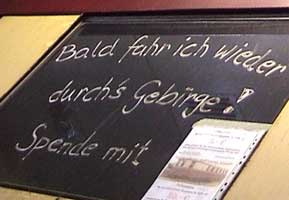 Bald fahr ich wieder
durch's Gebirge!
Spende mit